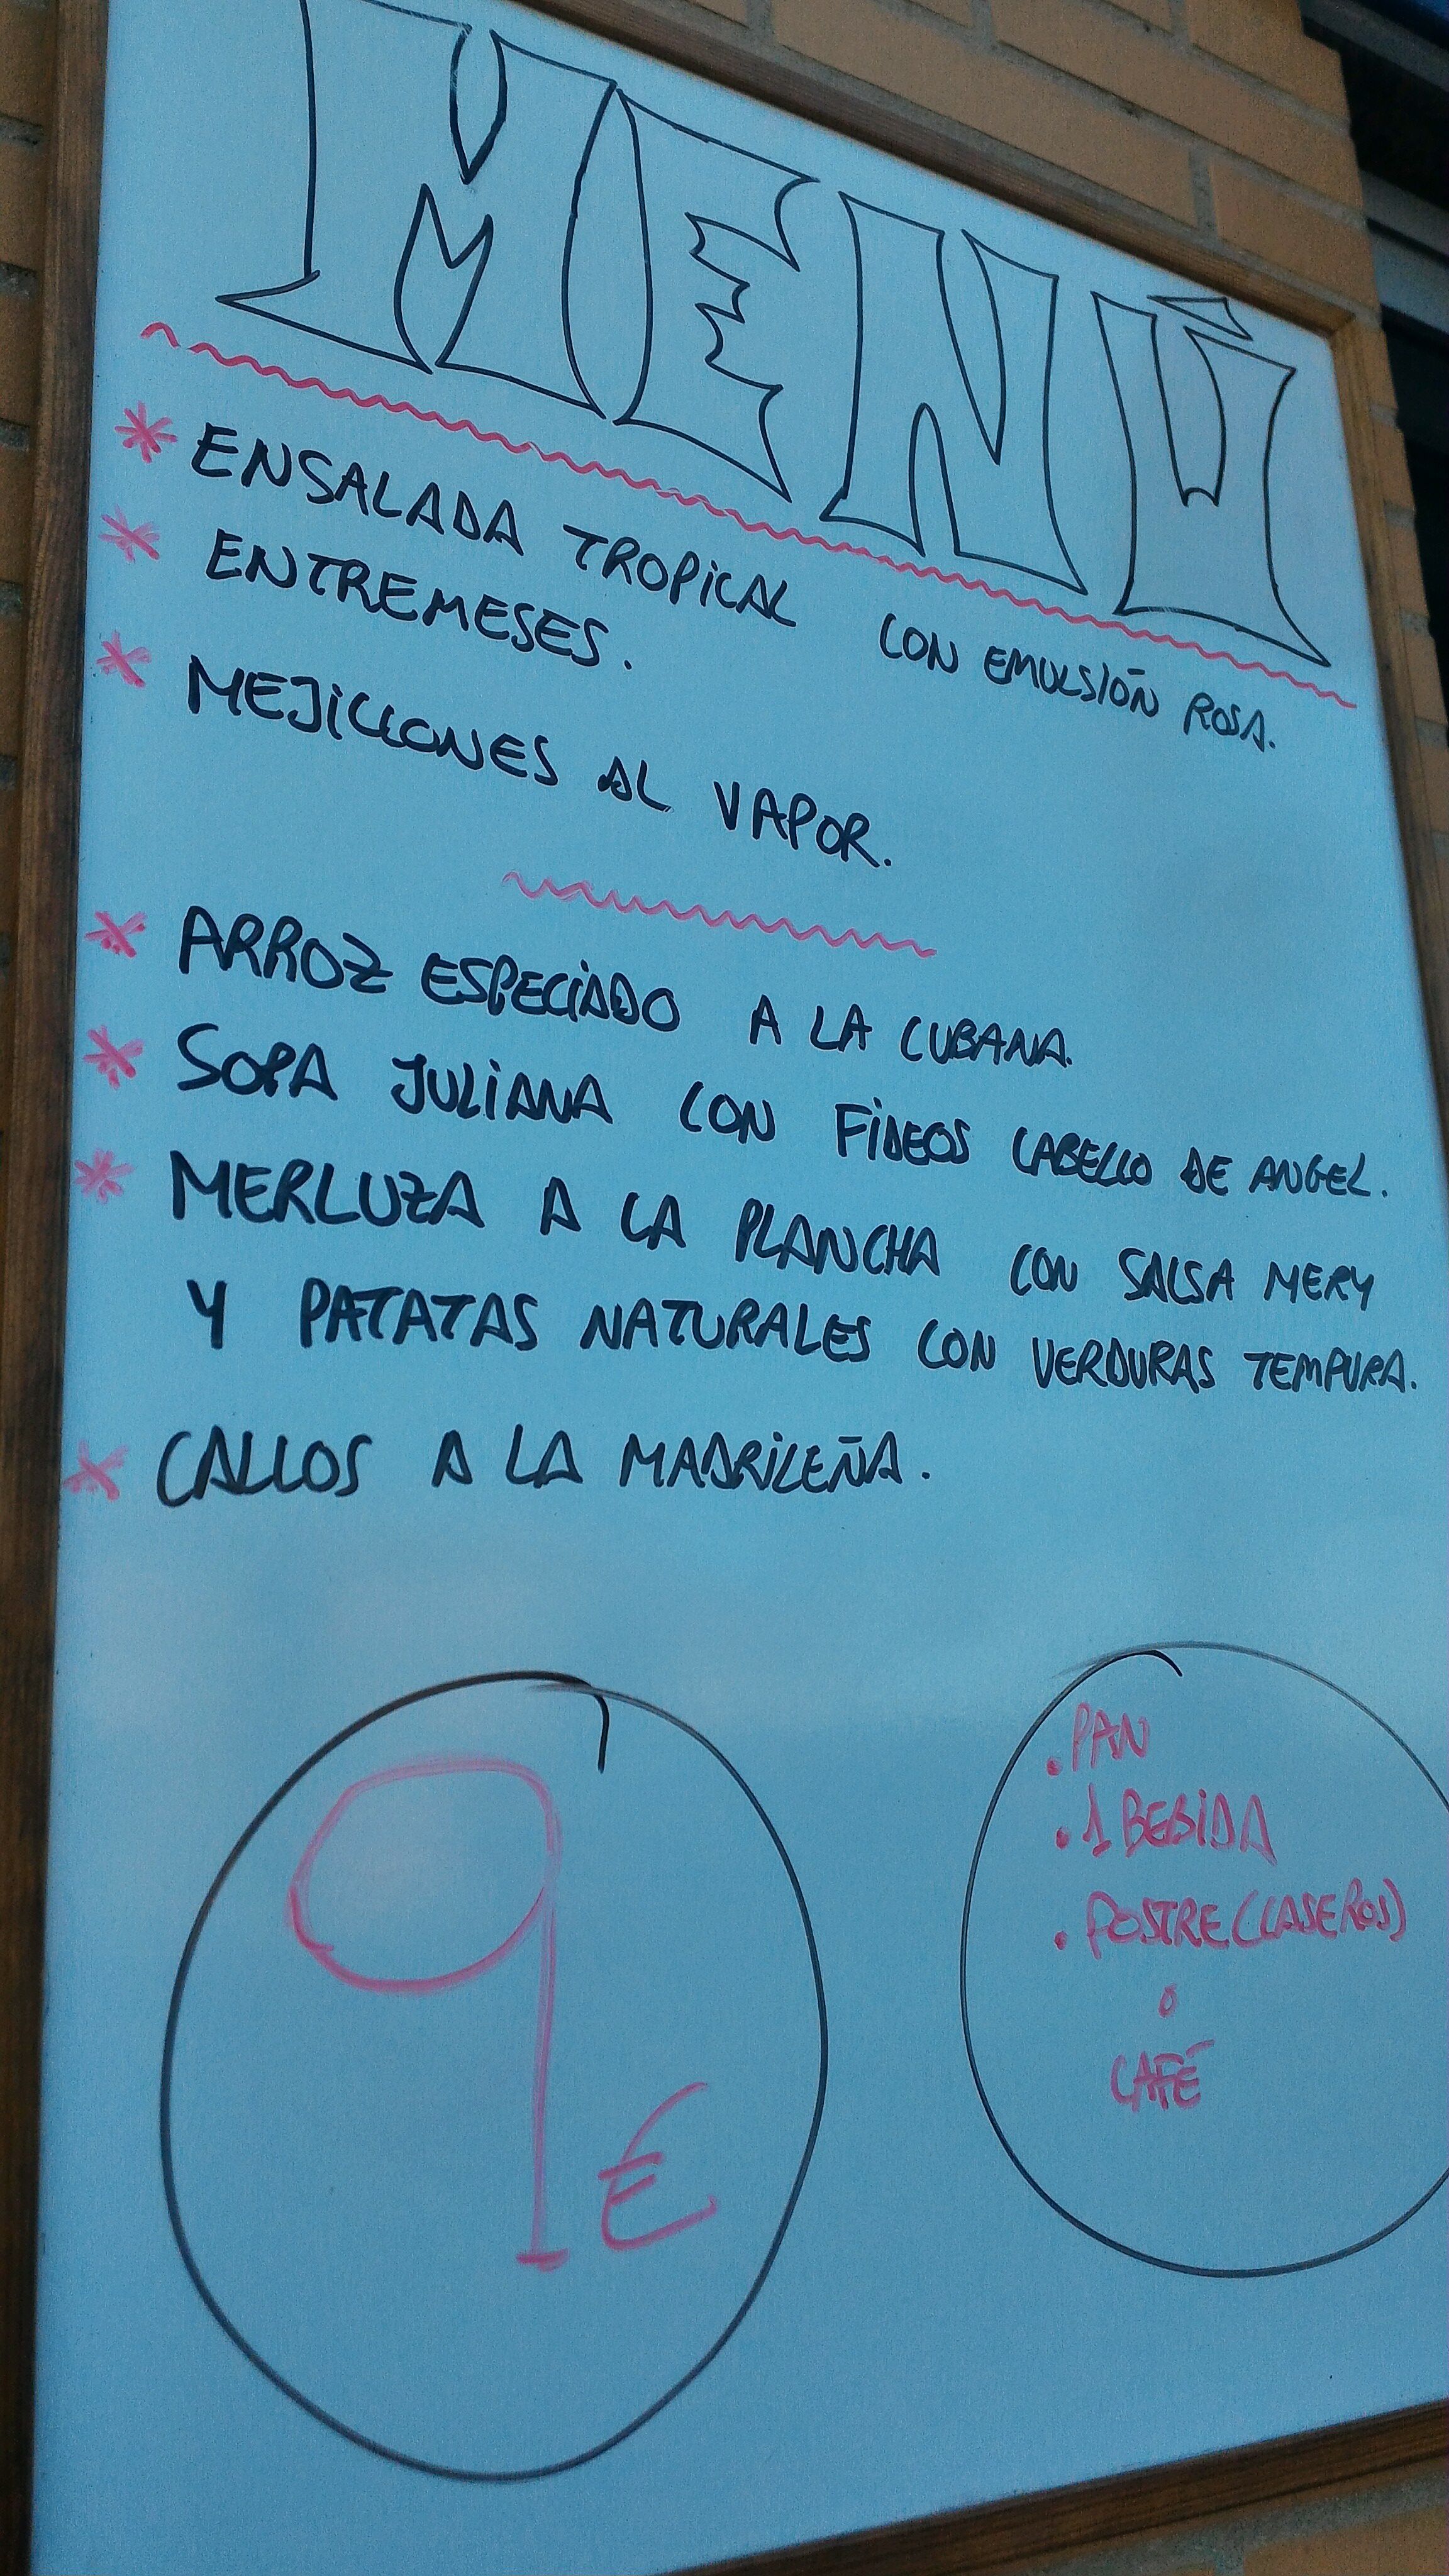 MENÚ
* ENSALADA TROPICAL CON EMULSIÓN ROSA.
* ENTREMESES.
* MEJILLONES AL VAPOR.
* ARROZ ESPECIADO A LA CUBANA.
* SOPA JULIANA CON FIDEOS CABELLO DE ANGEL.
* MERLUZA A LA PLANCHA CON SALSA MERY
Y PATATAS NATURALES CON VERDURAS TEMPURA.
* CALLOS A LA MADRILEÑA.
9€
. PAN
. 1 BEBIDA
. POSTRE (CASEROS)
o
CAFÉ